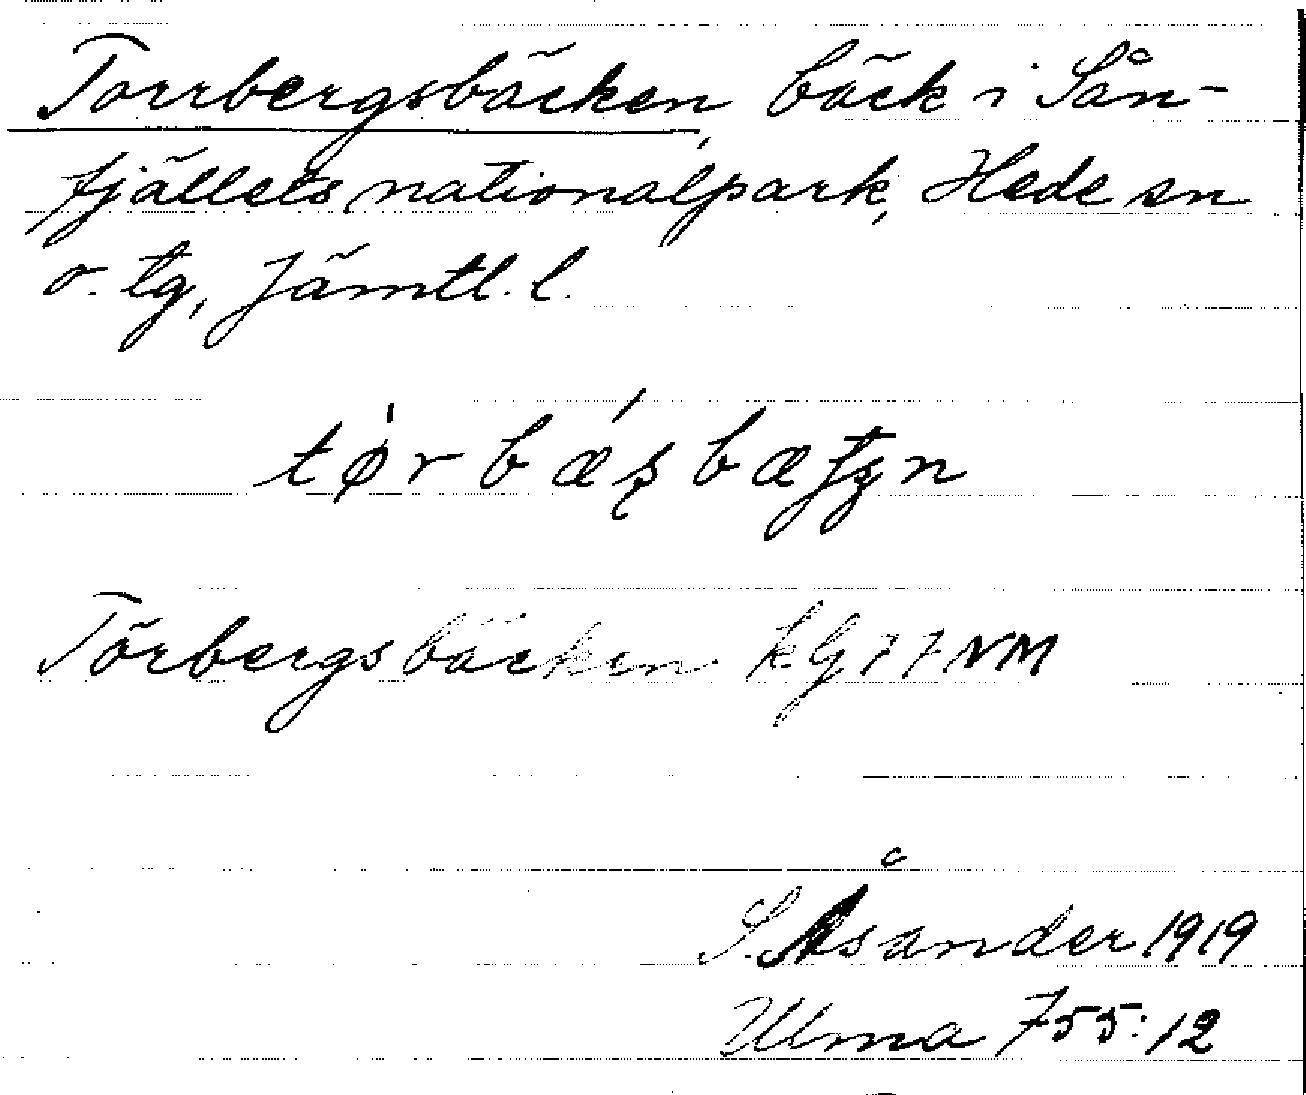 Torrbergsbäcken, bäck i Sån-
fjällets nationalpark, Hede sn
o. tg, Jämtl. l.
Törbergsbäcken kG 77 NM
S. Åsander 1919
Ulma 755:12